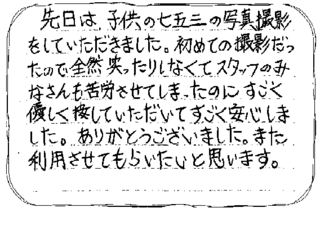 先日は、子供の七五三の写真撮影
をしていただきました。初めての撮影だっ
たので全然笑ったりしなくてスタッフのみ
なさんも苦労させてしまったのにすごく
優しく接していただいてすごく安心しま
した。ありがとうございました。また
利用させてもらいたいと思います。